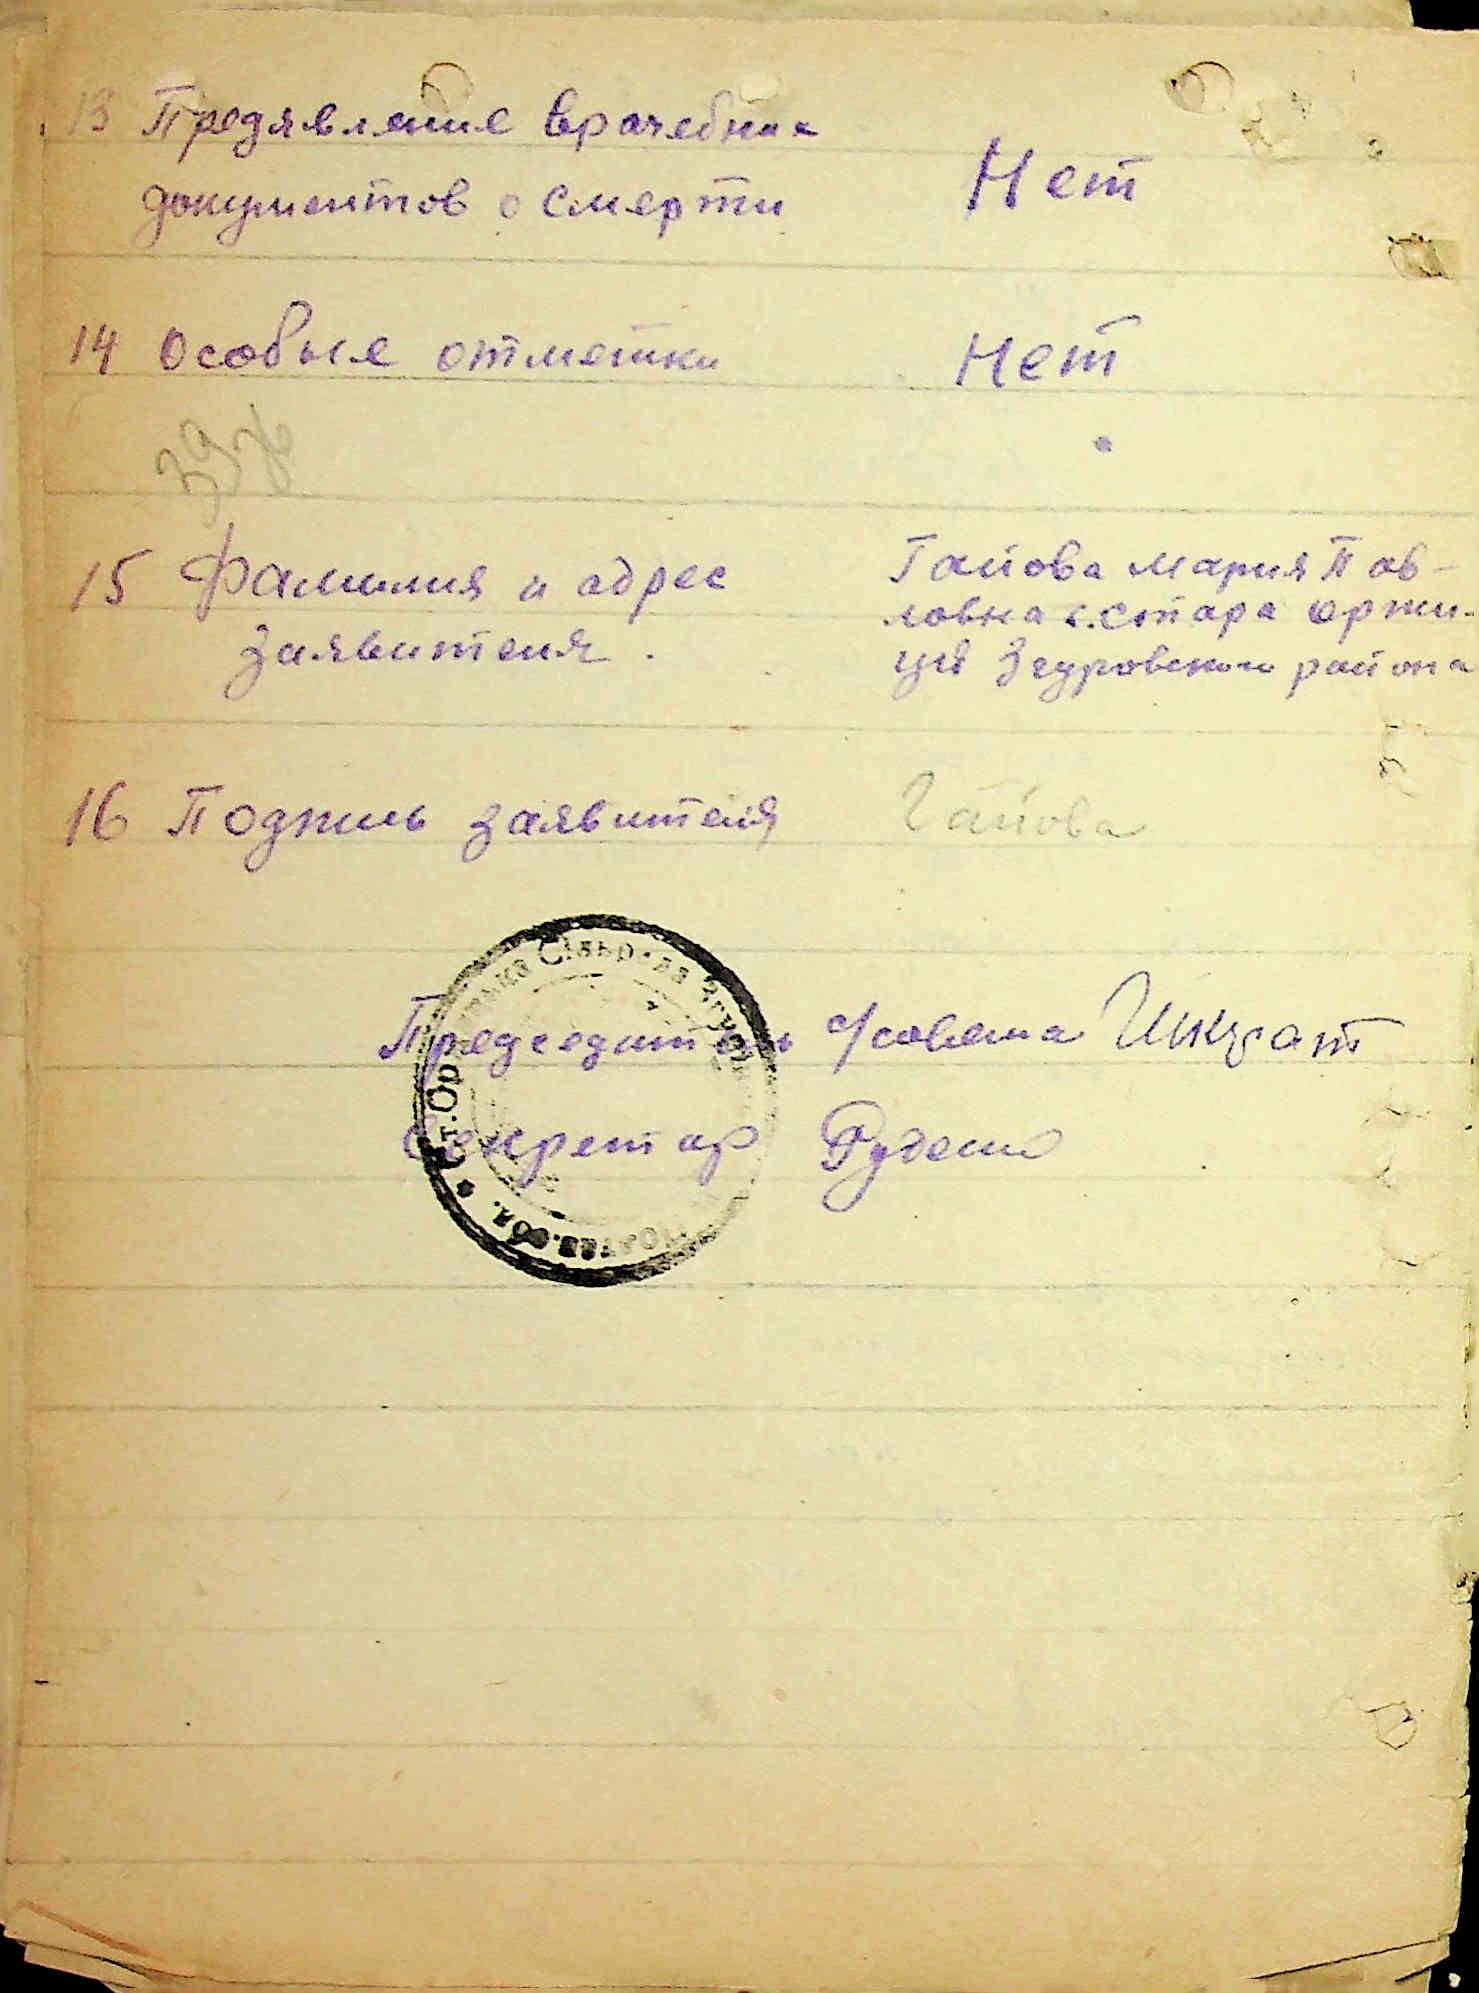 13 Предявление врачебных
документов о смерти
Нет
14 Особые отметки
Нет
15 Фамилия и адрес
заявителя.
Гайова Мария Пав-
ловна с. Стара Оржи-
ця Згуровского района
16 Подпись заявителя
Гайова
Председатель с/совета Шкурат
Секретар